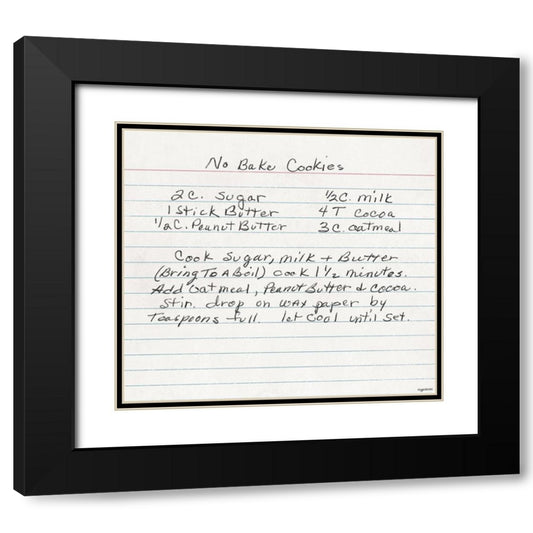 No Bake Cookies
2 C. Sugar ½ C. milk
1 Stick Butter 4 T cocoa
½ C. Peanut Butter 3 C. oatmeal
Cook Sugar, milk + Butter
(Bring To A Boil) cook 1½ minutes.
Add Oatmeal, Peanut Butter & cocoa.
Stir. drop on wax paper by
Teaspoons full. let Cool until set.